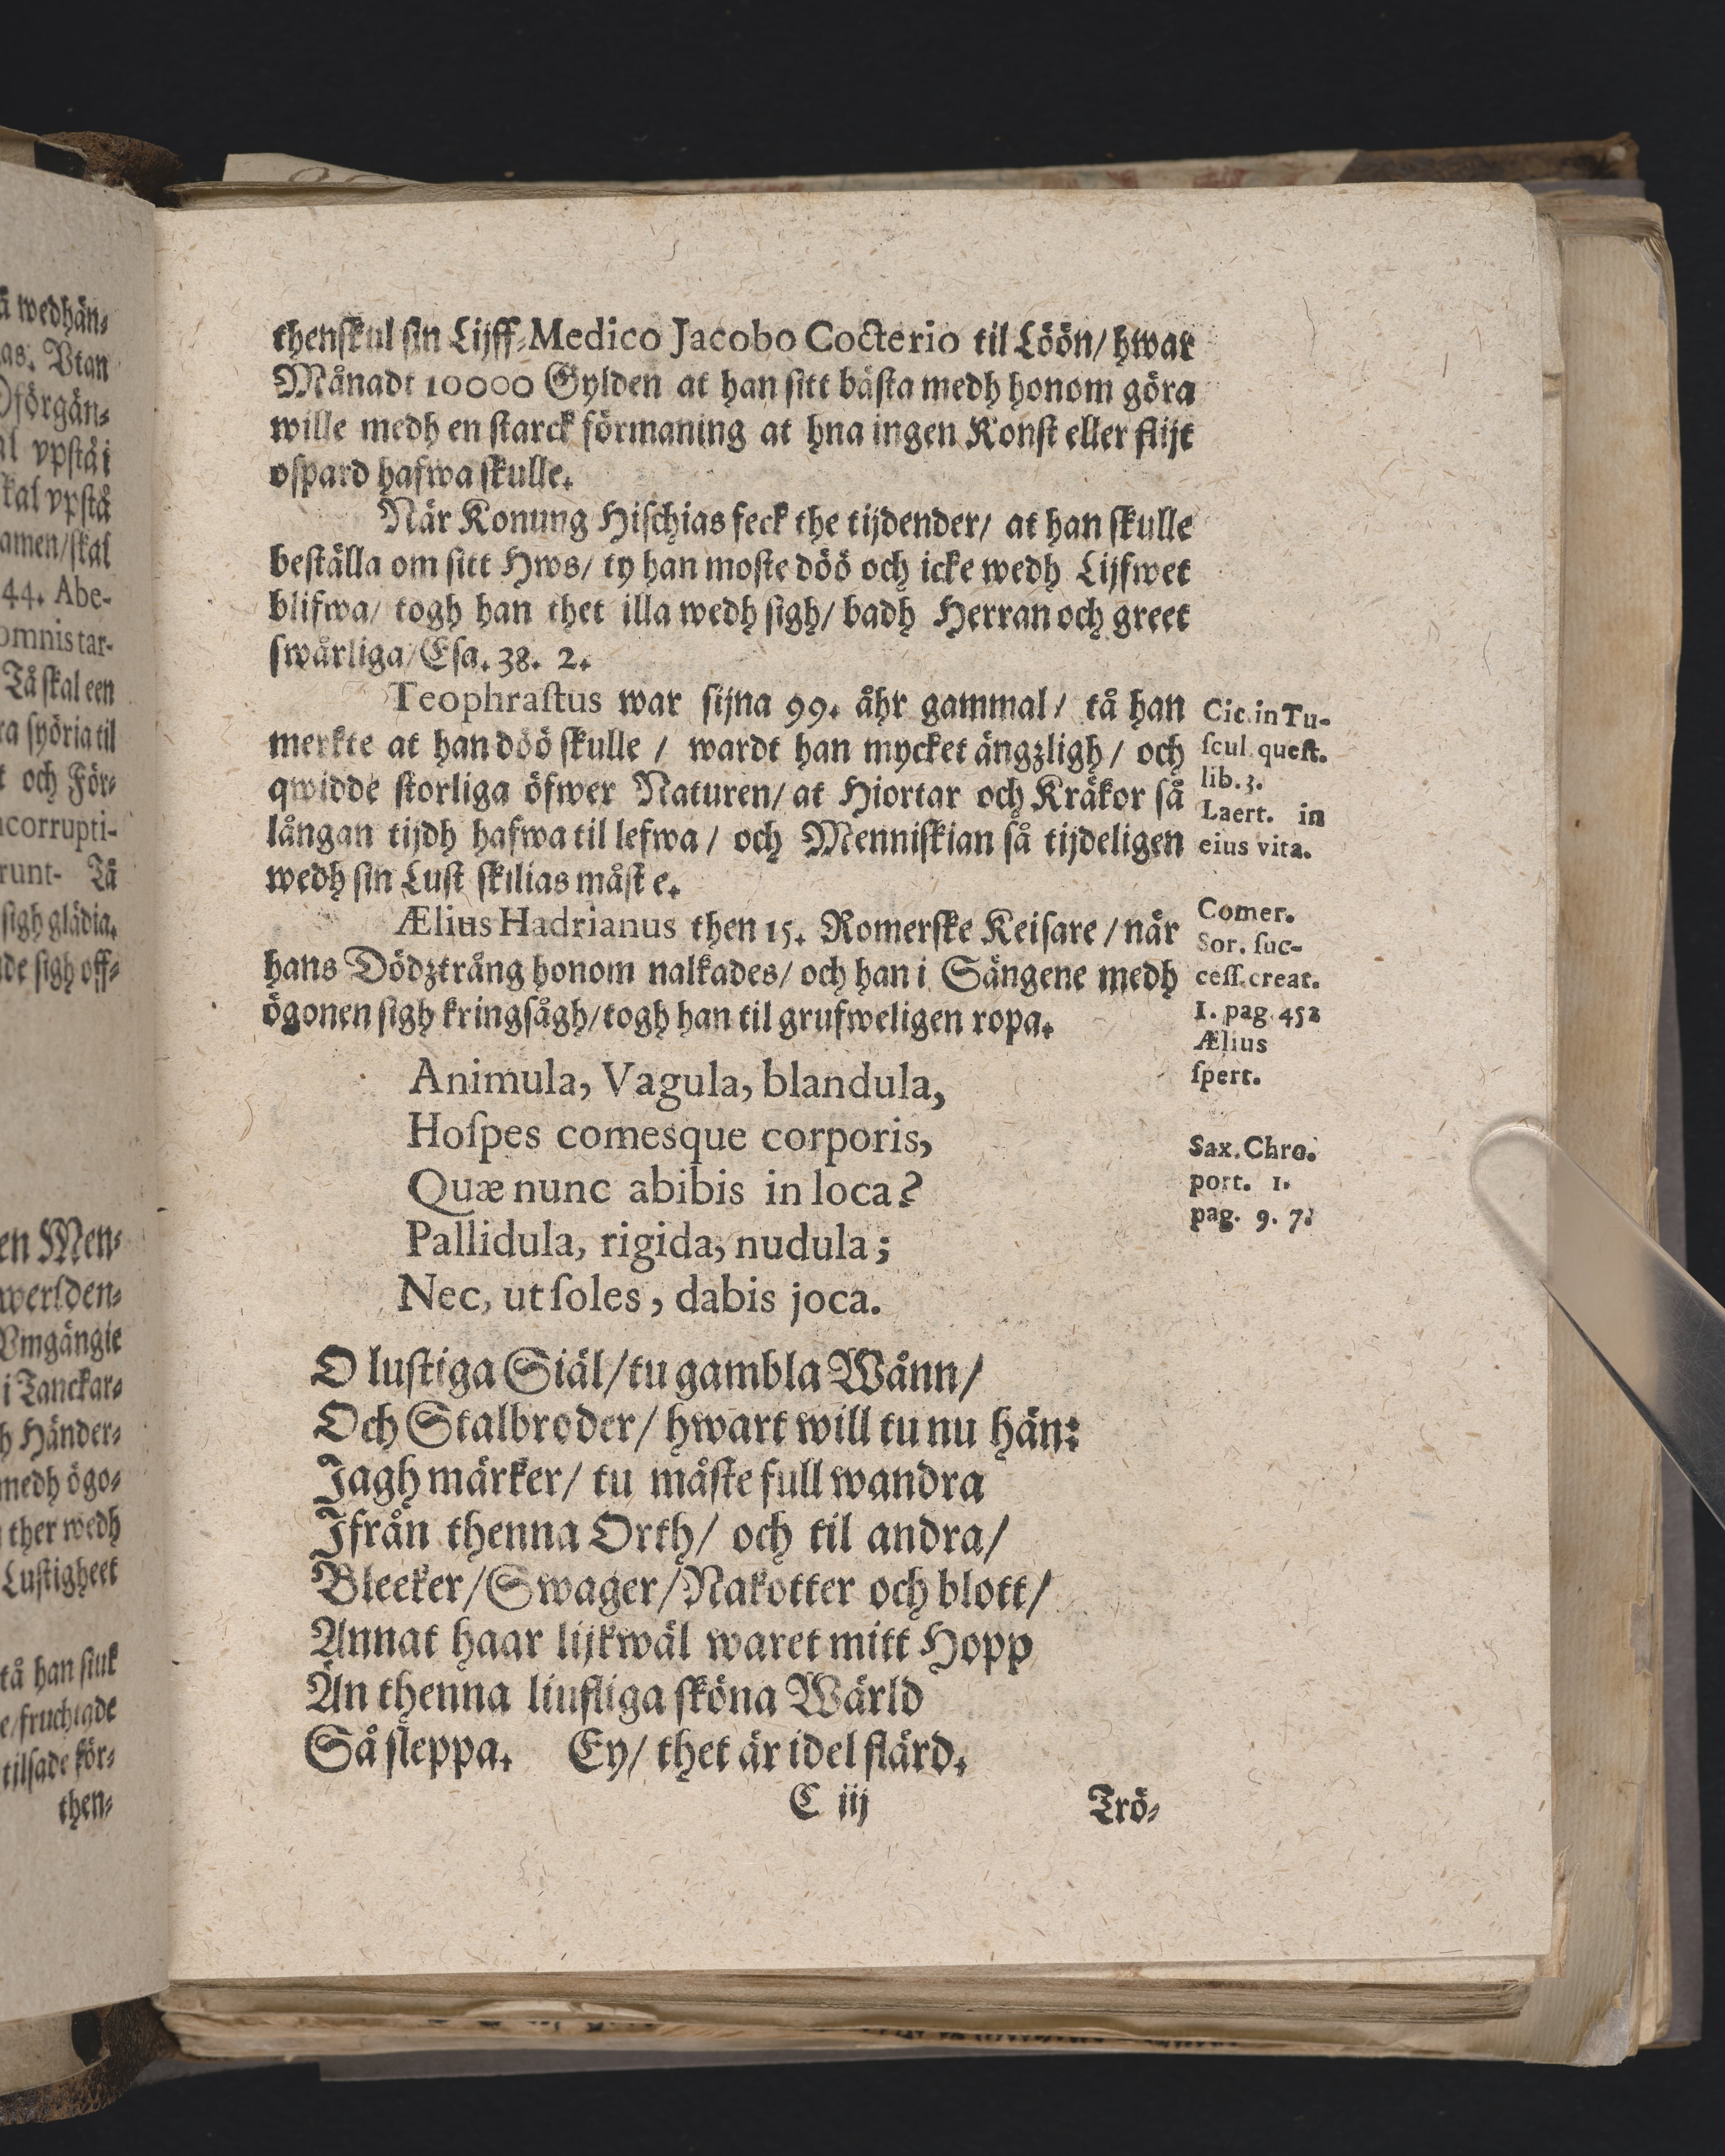 thenſkul ſin Lijff-Medico Jacobo Cocterio til Löön/ hwar
Månadt 10000 Gylden at han ſitt bäſta medh honom göra
wille medh en ſtarck förmaning at hna ingen Konſt eller flijt
oſpard hafwa ſkulle.
När Konung Hiſchias feck the tijdender/ at han ſkulle
beſtälla om ſitt Hws/ ty han moſte döö och icke wedh Lijfwet
blifwa/ togh han thet illa wedh ſigh/ badh Herran och greet
ſwårliga/ Eſa. 38. 2.
Teophraſtus war ſijna 99. åhr gammal/ tå han
merkte at han döö ſkulle / wardt han mycket ängzligh/ och
qwidde ſtorliga öfwer Naturen/ at Hiortar och Kråkor ſå
långan tijdh hafwa til lefwa/ och Menniſkian ſå tijdeligen
wedh ſin Luſt ſkilias måſt e.
Cic. in Tu-
ſcul. queſt.
lib. 3.
Laert. in
eius vita.
Ælius Hadrianus then 15. Romerſke Keiſare / når
hans Dödztrång honom nalkades/ och han i Sängene medh
ögonen ſigh kringſågh/ togh han til grufweligen ropa.
Comer.
Sor. ſuc-
ceſſ. creat.
1. pag 452
Ælius
ſpert.
Animula, Vagula, blandula,
Hoſpes comesque corporis,
Quæ nunc abibis in loca?
Pallidula, rigida, nudula;
Nec, ut ſoles, dabis joca.
Sax. Chro.
port. 1.
pag. 9. 7.
O luſtiga Siäl/ tu gambla Wånn/
Och Stalbroder/ hwart will tu nu hän:
Jagh märker/ tu måſte full wandra
Jfrån thenna Orth/ och til andra/
Bleeker/ Swager/ Nakotter och blott/
Annat haar lijkwäl waret mitt Hopp
Än thenna liufliga ſköna Wärld
Så ſleppa. Ey/ thet är idel flärd.
C iij
Trö-